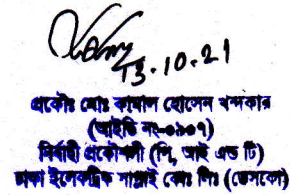 13.10.21
প্রকৌঃ মোঃ কামাল হোসেন খন্দকার
(আইডি নং-০৯০৭)
নির্বাহী প্রকৌশলী (পি, আই এন্ড টি)
ঢাকা ইলেকট্রিক সাপ্লাই কোঃ লিঃ (ডেসকো)